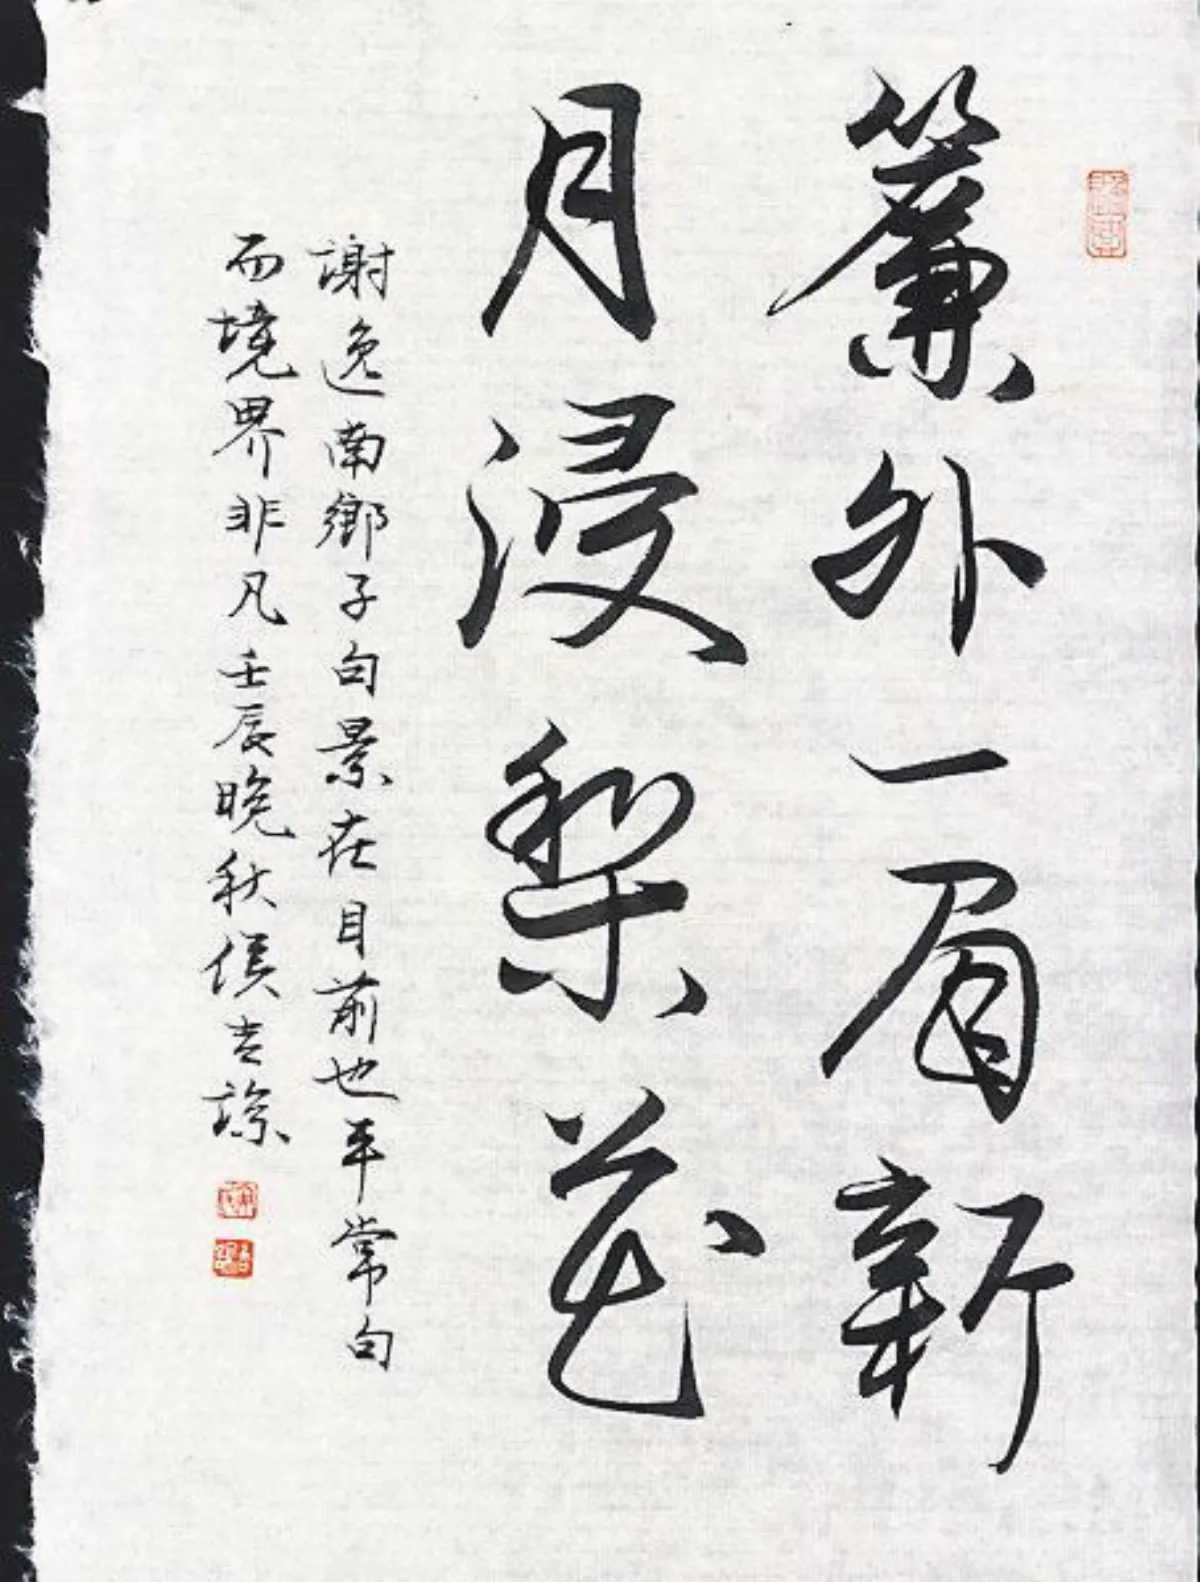 簾外一眉新
月浸梨花
謝逸南鄉子句景在目前也平常句
而境界非凡壬辰晚秋侯吉諒